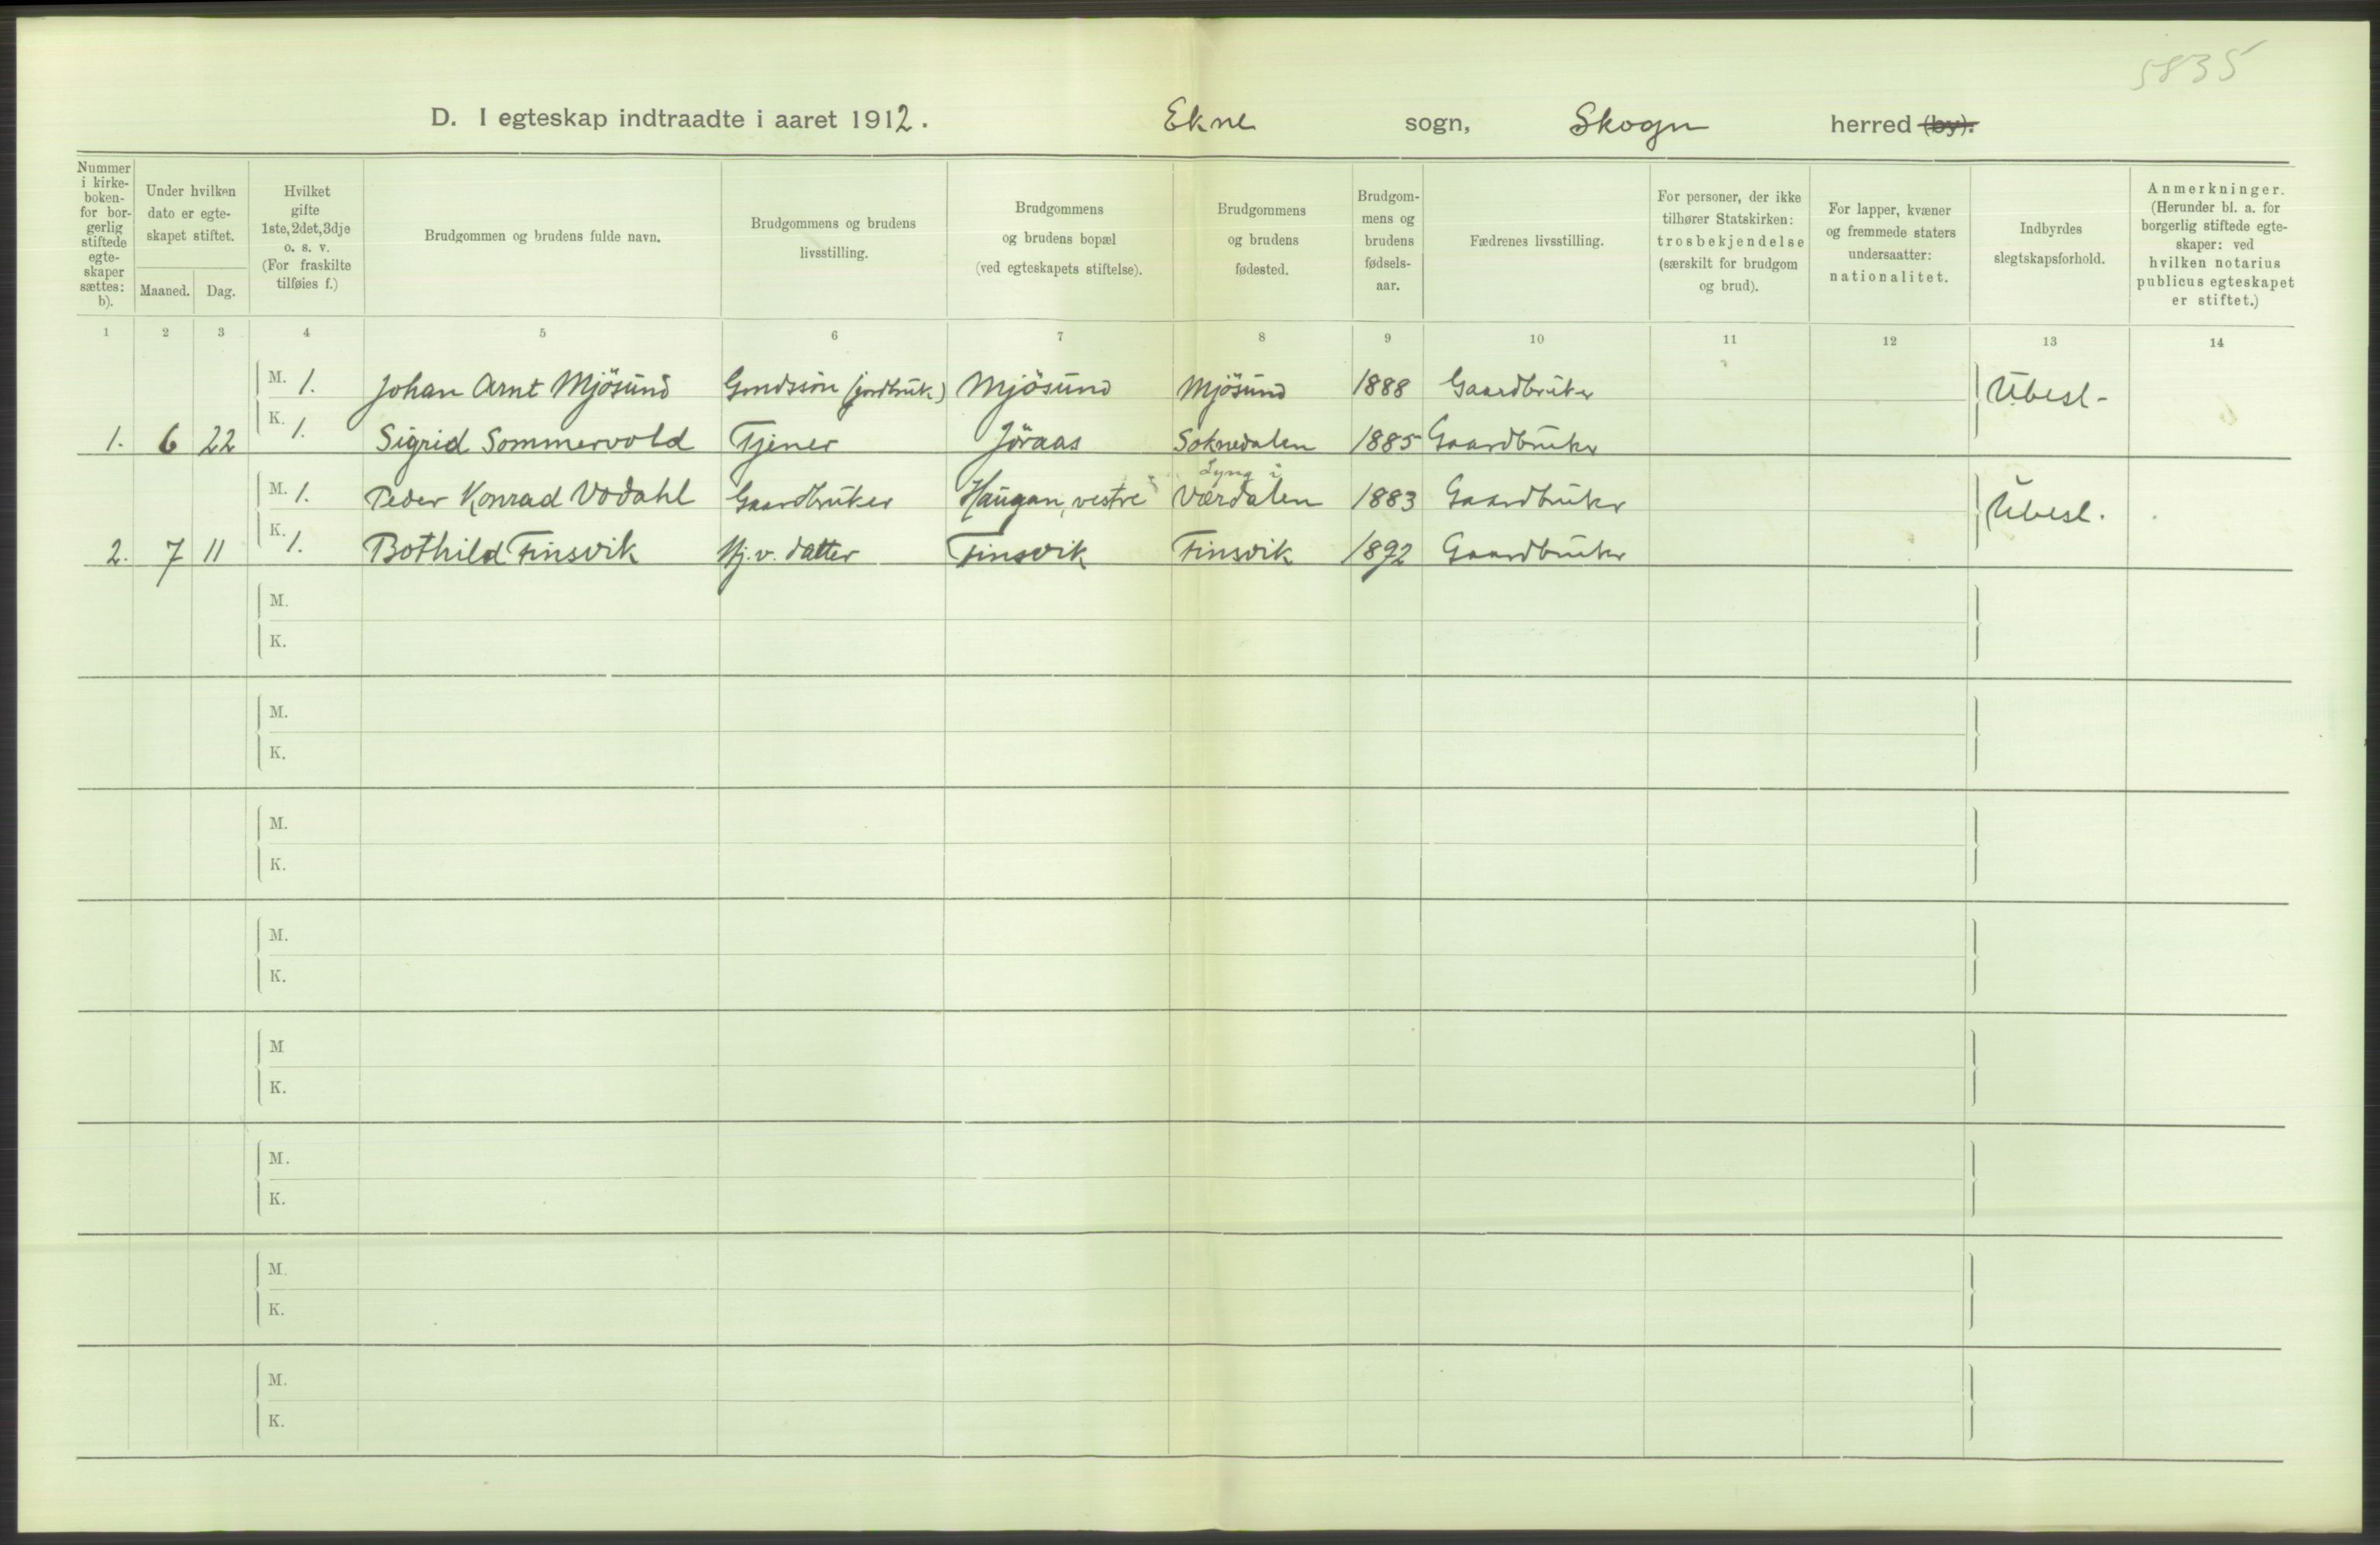 5835
D. I egteskap indtraadte i aaret 1912. Ekne sogn, Skogn herred (by).
Nummer i kirke-boken- for bor-gerlig stiftede egte-skaper sættes: b).
Under hvilken dato er egte-skapet stiftet.
Maaned. Dag.
Hvilket gifte 1ste, 2det, 3dje o. s. v. (For fraskilte tilføies f.)
Brudgommen og brudens fulde navn.
Brudgommens og brudens livsstilling.
Brudgommens og brudens bopæl (ved egteskapets stiftelse).
Brudgommens og brudens fødested.
Brudgom-mens og brudens fødsels-aar.
Fædrenes livsstilling.
For personer, der ikke tilhører Statskirken: trosbekjendelse (særskilt for brudgom og brud).
For lapper, kvæner og fremmede staters undersaatter: nationalitet.
Indbyrdes slegtskapsforhold.
Anmerkninger. (Herunder bl. a. for borgerlig stiftede egte-skaper: ved hvilken notarius publicus egteskapet er stiftet.)
1 2 3 4 5 6 7 8 9 10 11 12 13 14
M. 1. Johan Arnt Mjösund (jordbruk.) Mjösund Mjösund 1888 Gaardbruker Ubesl-
1. 6 22 K. 1. Sigrid Sommervold Tjener Jöraas Soknedalen 1885 Gaardbruker
Lyng i
M. 1. Peder Konrad Vodahl Gaardbruker Haugan, vestre Værdalen 1883 Gaardbruker Ubesl.
2. 7 11 K. 1. Bothild Finsvik Hj. v. datter Finsvik Finsvik 1892 Gaardbruker
M.
K.
M.
K.
M.
K.
M.
K.
M
K.
M.
K.
M.
K.
M.
K.